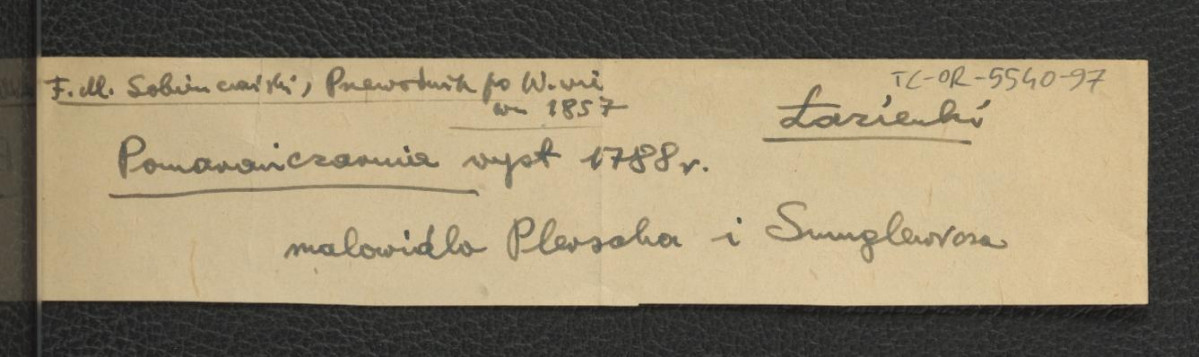 F. M. Sobieszczański, Przewodnik po W-wie
w. 1857
TC-OR-5540-97
Łazienki
Pomarańczarnia wyst 1788 r.
malowidła Plerscha i Smuglewicza